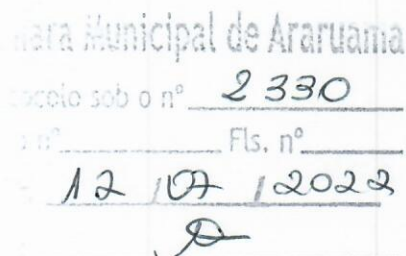 Municipal de Araruama
sob o nº 2330
nº Fls. nº
12/07/2022